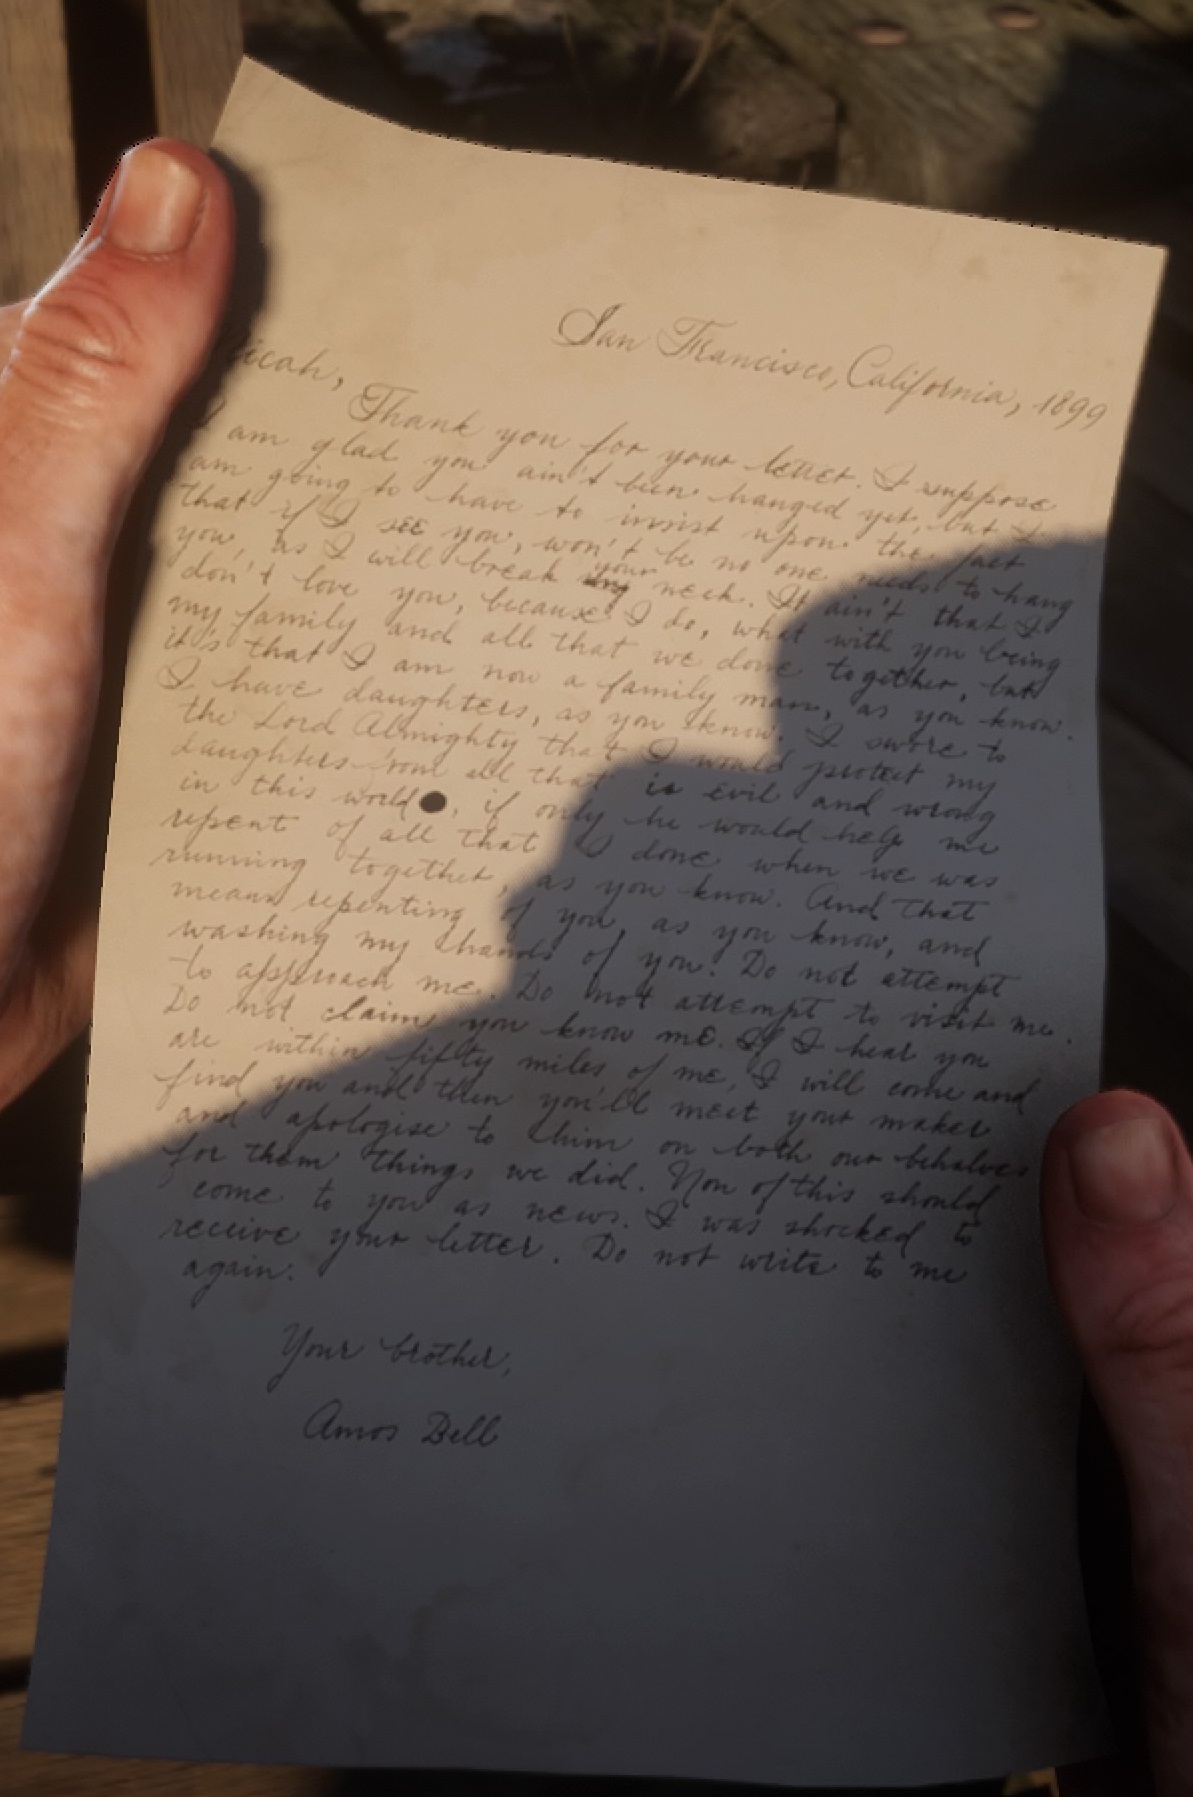 San Francisco, California, 1899
Micah,
Thank you for your letter. I suppose
I am glad you ain't been hanged yet, but I
am going to have to insist upon the fact
that if I see you, won't be no one needs to hang
you, as I will break your neck. It ain't that I
don't love you, because I do, what with you being
my family and all that we done together, but
it's that I am now a family man, as you know.
I have daughters, as you know. I swore to
the Lord Almighty that I would protect my
daughters from all that is evil and wrong
in this world, if only he would help me
repent of all that I done when we was
running together, as you know. And that
means repenting of you, as you know, and
washing my hands of you. Do not attempt
to approach me. Do not attempt to visit me.
Do not claim you know me. If I hear you
are within fifty miles of me, I will come and
find you and then you'll meet your maker
and apologise to him on both our behalves
for them things we did. Non of this should
come to you as news. I was shocked to
receive your letter. Do not write to me
again.
Your brother,
Amos Bell